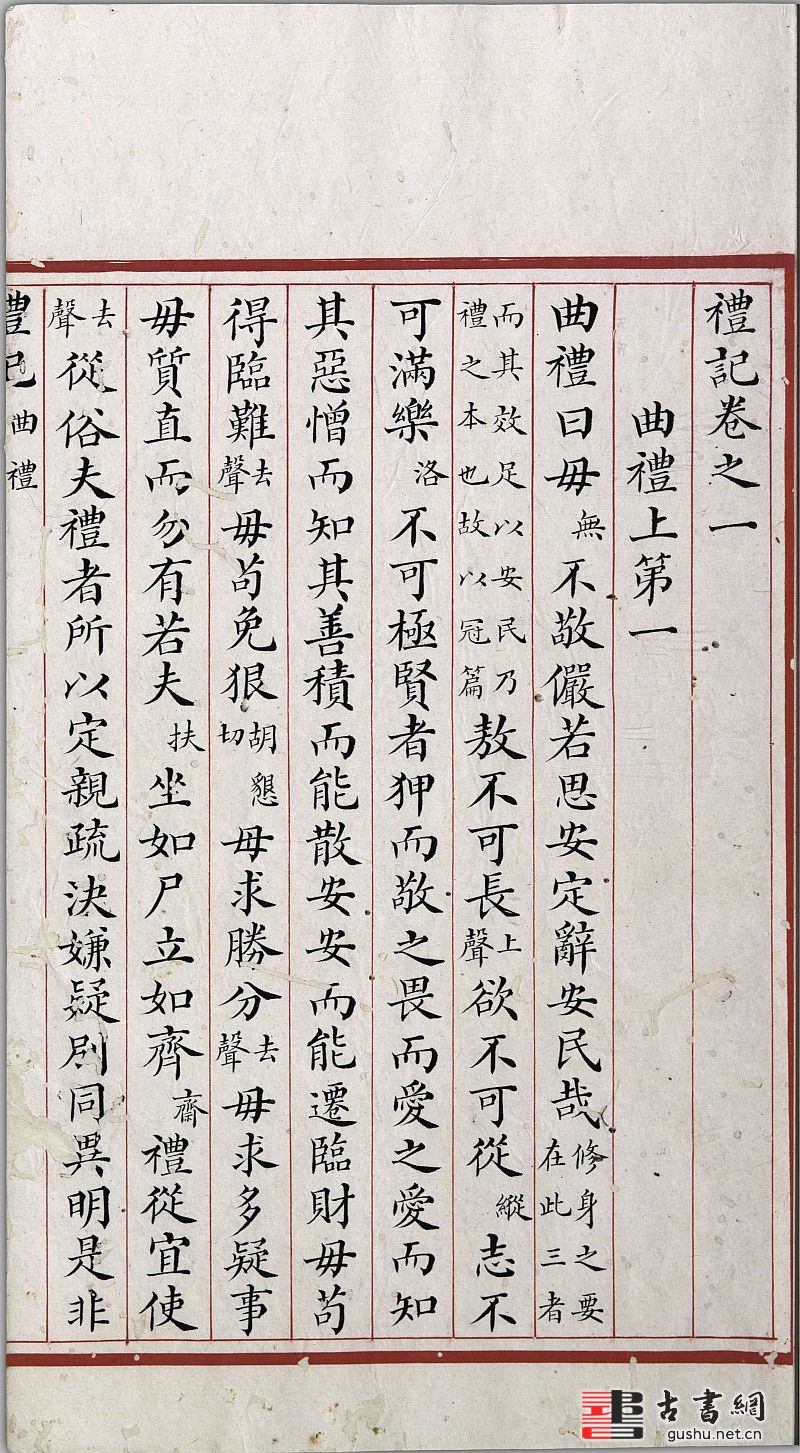 禮記卷之一
曲禮上第一
曲禮曰毋無不敬儼若思安定辭安民哉修身之要在此三者
而其效足以安民乃禮之本也故以冠篇敖不可長上聲欲不可從縱志不
可滿樂洛不可極賢者狎而敬之畏而愛之愛而知
其惡憎而知其善積而能散安安而能遷臨財毋苟
得臨難去聲毋苟免狠胡懇切毋求勝分去聲毋求多疑事
毋質直而勿有若夫扶坐如尸立如齊齋禮從宜使
去聲從俗夫禮者所以定親疏決嫌疑別同異明是非
禮記 曲禮
古書網
gushu.net.cn